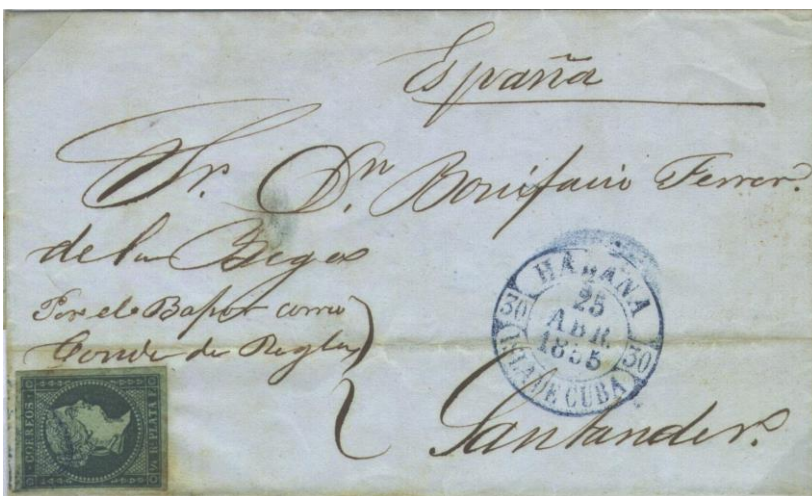 España
Sr. Dn Bonifacio Ferrer.
de la Bega
Por el Bapor correo
Conde de Regla
HABANA
25
ABR.
1855
30 30
ISLA DE CUBA
Santander.
CORREOS